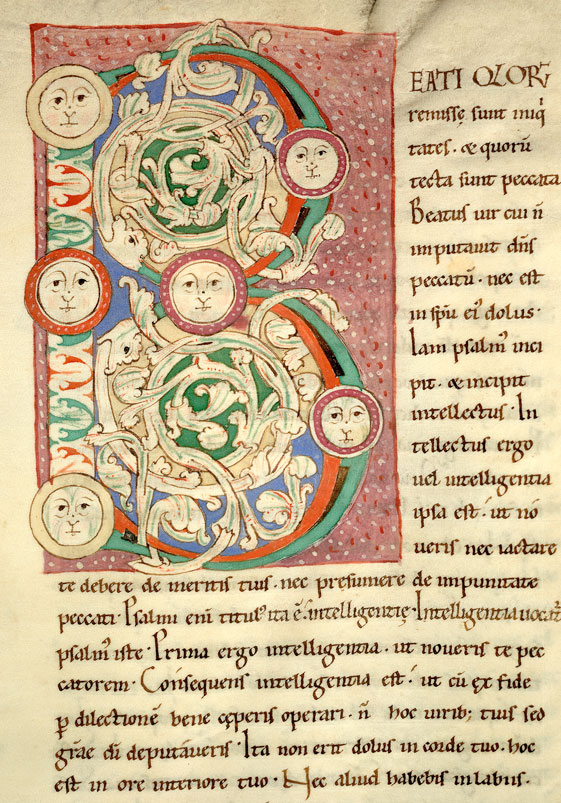 BEATI QUOR̄
remissę sunt iniq̇
tates . & quorū
tecta sunt peccata
Beatus uir cui ñ
imputauit dñs
peccatū . nec est
in sp̄u ei᾽ dolus .
Iam psalm᾽ inci
pit . & incipit
intellectus . In
tellectus ergo
uel intelligentia
ipsa est . ut nō
ueris nec iactare
te debere de meritis tuis . nec presumere de impunitate
peccati . Psalmi eni titul᾽ ita ē . intelligentię . Intelligentia uocat᾽
psalm᾽ iste . Prima ergo intelligentia . ut noueris te pec
catorem . Consequens intelligentia est . ut cū ex fide
ꝑ dilectionē bene cęperis operari . ñ hoc uirib; tuis sed
grāe dī deputāueris . Ita non erit dolus in corde tuo . hoc
est in ore interiore tuo . Nec aliud habebis in labiis .